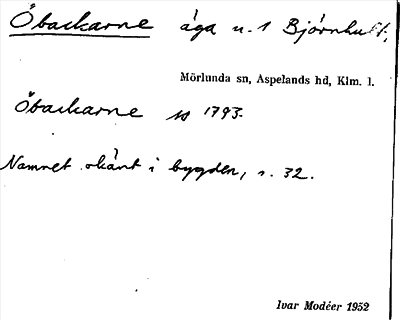 Öbackarne åga u. 1 Björnhult,
Mörlunda sn, Aspelands hd, Klm. l.
Öbackarne 1793.
Namnet okänt i bygden, s. 32.
Ivar Modéer 1952